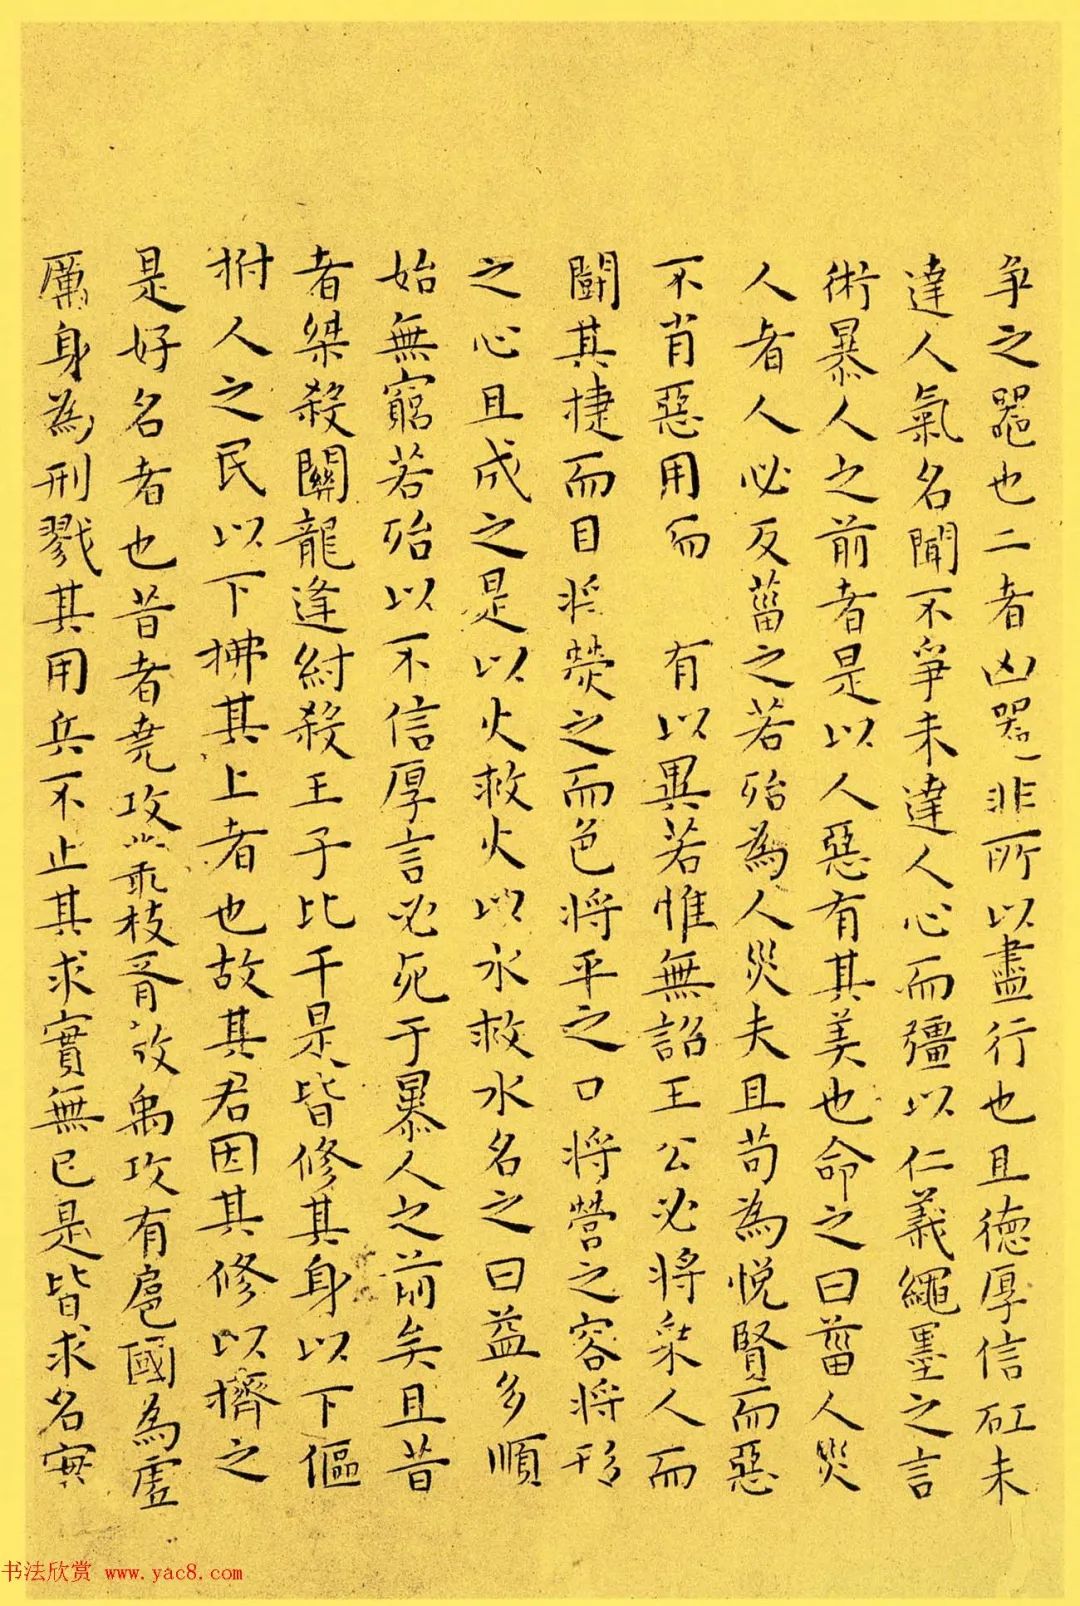 争之器也二者凶器非所以盡行也且德厚信矼未
達人氣名聞不爭未達人心而彊以仁義繩墨之言
術暴人之前者是以人惡有其美也命之曰菑人災
人者人必反菑之若殆為人災夫且苟為悅賢而惡
不肖惡用而 有以異若惟無詔王公必將乘人而
鬭其捷而目将熒之而色将平之口将營之容将形
之心且成之是以火救火以水救水名之曰益多順
始無窮若殆以不信厚言必死于暴人之前矣且昔
者桀殺關龍逢紂殺王子比干是皆修其身以下傴
拊人之民以下拂其上者也故其君因其修以擠之
是好名者也昔者堯攻叢枝胥敖禹攻有扈國為虛
厲身為刑戮其用兵不止其求實無已是皆求名實
书法欣赏 www.yac8.com